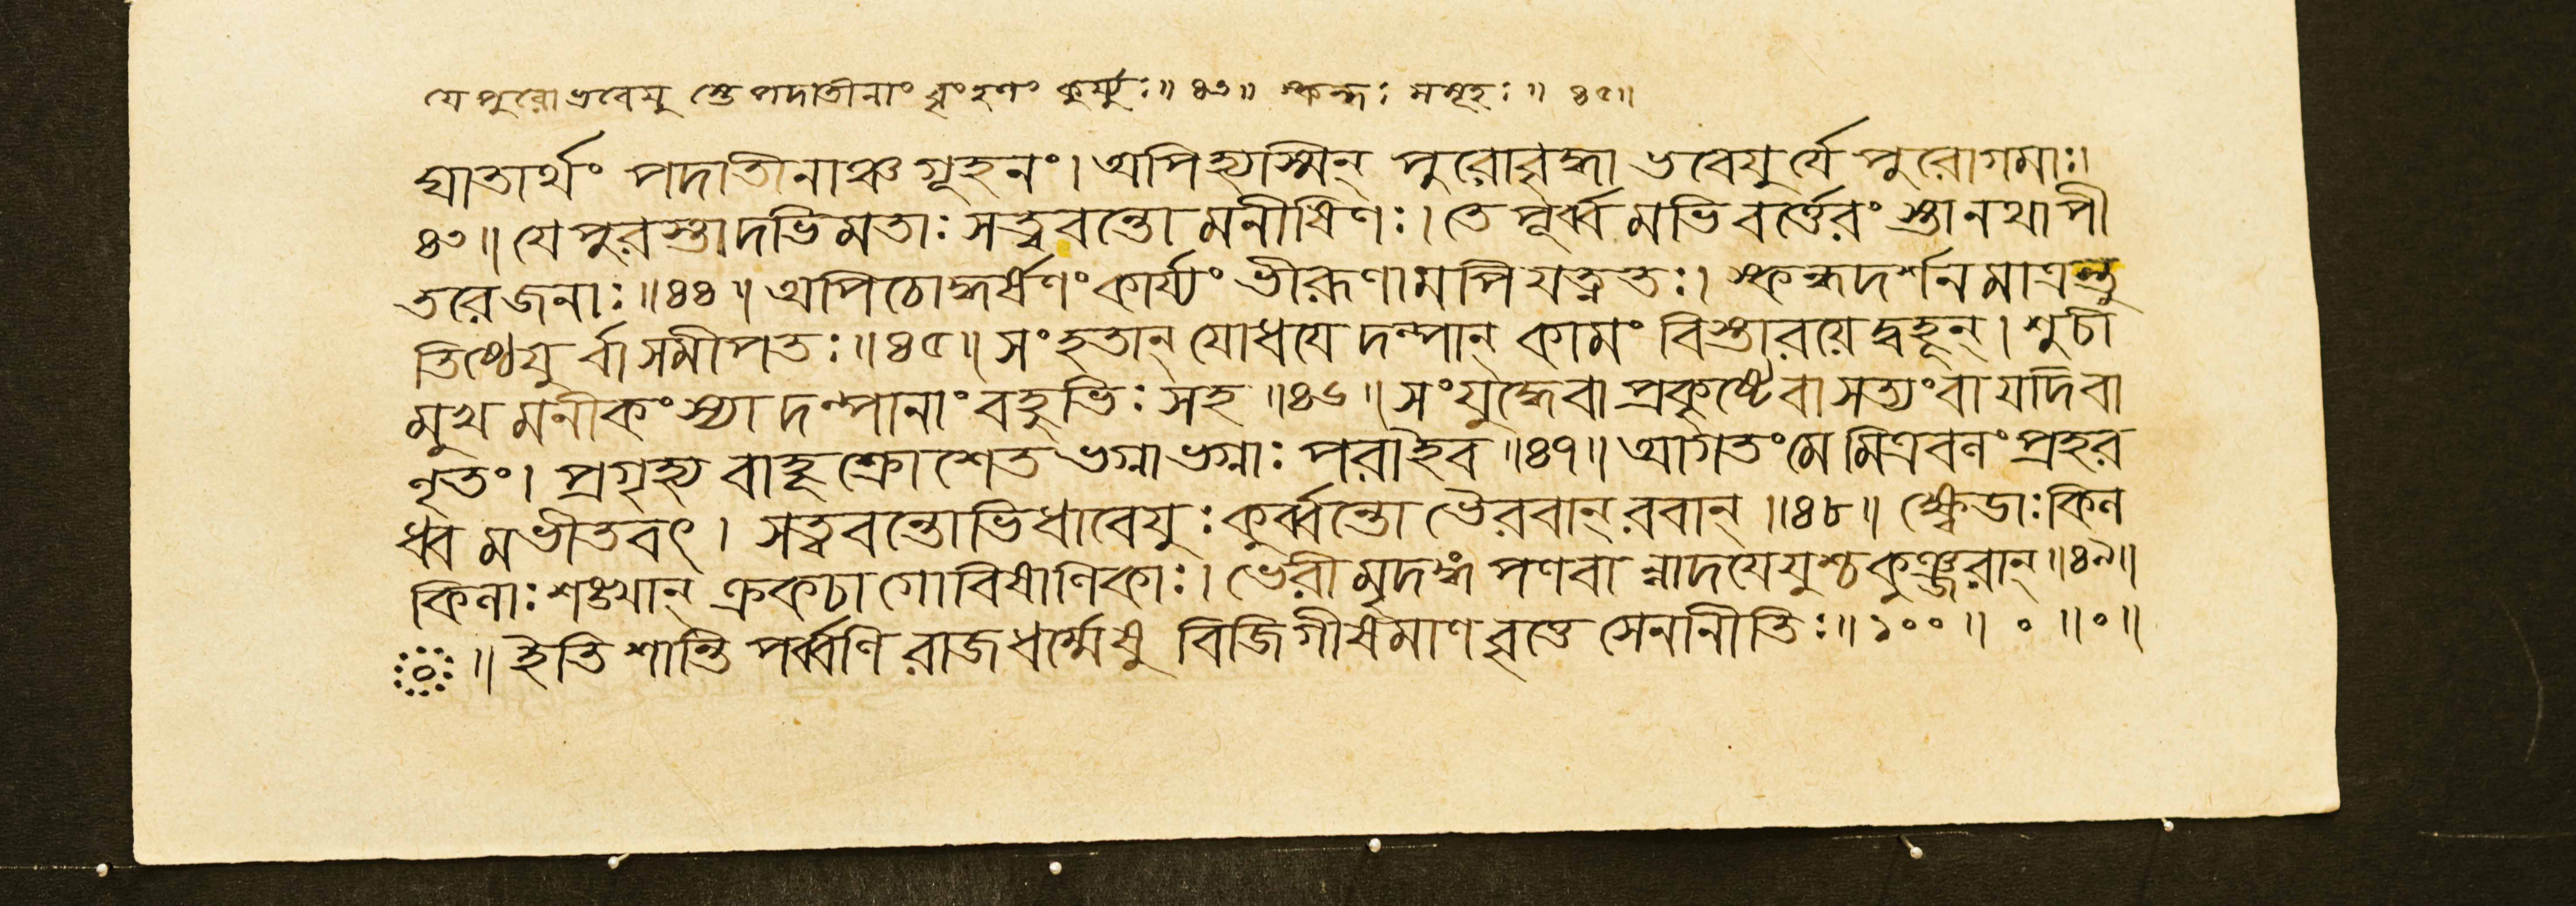 যে পুরো ভবেযু স্তে পদাতীনাং বৃংহণং কুর্য্যুঃ॥ ৪৩॥ স্কন্ধঃ সমূহঃ॥ ৪৫॥
ঘাতার্থং পদাতীনাঞ্চ গূহনং। অপিহ্যস্মিন্ পুরোবৃদ্ধা ভবেযুর্যে পুরোগমাঃ।
৪৩॥ যে পুরস্তাদভিমতাঃ সত্ত্ববন্তো মনীষিণঃ। তে পূর্ব্বমভিবর্ত্তেরং স্তানথাপী
তরেজনাঃ॥৪৪॥ অপিচোদ্ধর্ষণং কার্য্যং ভীরূণামপি যত্নতঃ। স্কন্ধদর্শনমাত্রন্তু
তিষ্ঠেযুর্বা সমীপতঃ॥৪৫॥ সংহতান্ যোধযেদল্পান্ কামং বিস্তারয়েদ্বহূন্। শুচী
মুখমনীকংস্যাদল্পানাং বহুভিঃ সহ॥৪৬॥ সংযুদ্ধেবা প্রকৃষ্টেবা সত্যংবা যদিবা
নৃতং। প্রগৃহ্য বাহূ ক্রোশেত ভগ্নাভগ্নাঃ পরাইব॥৪৭॥ আগতং মে মিত্রবলং প্রহর
ধ্বমভীতবৎ। সত্ত্ববন্তোভিধাবেযুঃ কুর্ব্বন্তো ভৈরবান্ রবান্॥৪৮॥ ক্ষ্বেডাঃ কিল
কিলাঃ শঙ্খান্ ক্রকচা গোবিষাণিকাঃ। ভেরীমৃদঙ্গ পণবা ন্নাদযেযুশ্চ কুঞ্জরান্॥৪৯॥
॥ ইতি শান্তি পর্ব্বণি রাজধর্ম্মেষু বিজিগীষমাণ বৃত্তে সেনানীতিঃ॥ ১০০॥ ০ ॥০॥